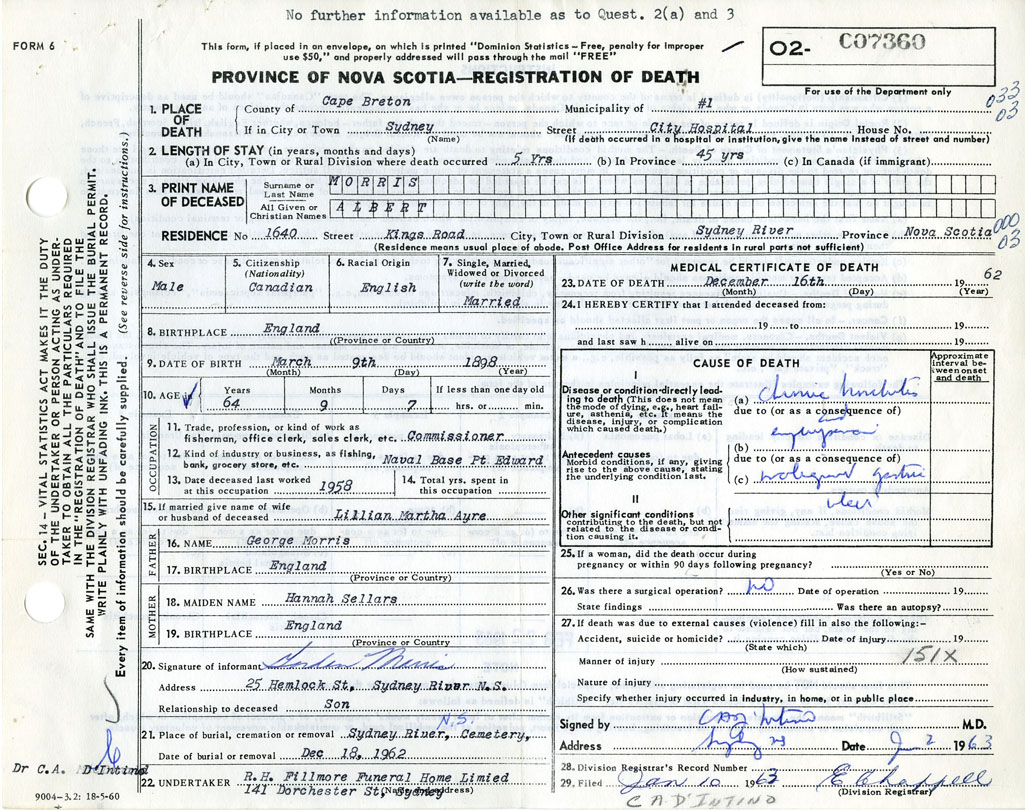 No further information available as to Quest. 2(a) and 3
FORM 6
This form, if placed in an envelope, on which is printed "Dominion Statistics – Free, penalty for improper
use $50," and properly addressed will pass through the mail "FREE"
O2- C07360
For use of the Department only
PROVINCE OF NOVA SCOTIA—REGISTRATION OF DEATH
033
03
1. PLACE OF DEATH
County of Cape Breton Municipality of #1
If in City or Town Sydney Street City Hospital House No.
(Name) (If death occurred in a hospital or institution, give the name instead of street and number)
2. LENGTH OF STAY (in years, months and days)
(a) In City, Town or Rural Division where death occurred 5 Yrs (b) In Province 45 yrs (c) In Canada (if immigrant)
3. PRINT NAME OF DECEASED
Surname or Last Name MORRIS
All Given or Christian Names ALBERT
RESIDENCE No 1640 Street Kings Road City, Town or Rural Division Sydney River Province Nova Scotia
000
03
(Residence means usual place of abode. Post Office Address for residents in rural parts not sufficient)
4. Sex
Male
5. Citizenship
(Nationality)
Canadian
6. Racial Origin
English
7. Single, Married,
Widowed or Divorced
(write the word)
Married
8. BIRTHPLACE England
((Province or Country)
9. DATE OF BIRTH March 9th 1898
(Month) (Day) (Year)
10. AGE
Years Months Days If less than one day old
64 9 7 hrs. or min.
OCCUPATION
11. Trade, profession, or kind of work as
fisherman, office clerk, sales clerk, etc. Commissioner
12. Kind of industry or business, as fishing,
bank, grocery store, etc. Naval Base Pt Edward
13. Date deceased last worked
at this occupation 1958
14. Total yrs. spent in
this occupation
15. If married give name of wife
or husband of deceased Lillian Martha Ayre
FATHER
16. NAME George Morris
17. BIRTHPLACE England
(Province or Country)
MOTHER
18. MAIDEN NAME Hannah Sellars
19. BIRTHPLACE England
(Province or Country
20. Signature of informant Gordon Morris
Address 25 Hemlock St, Sydney River N.S.
Relationship to deceased Son
N.S.
21. Place of burial, cremation or removal Sydney River, Cemetery,
Date of burial or removal Dec 18, 1962
22. UNDERTAKER R.H. Fillmore Funeral Home Limied
141 Dorchester St, Sydney
(Name and address)
MEDICAL CERTIFICATE OF DEATH
23. DATE OF DEATH December 16th 1962
(Month) (Day) (Year)
24. I HEREBY CERTIFY that I attended deceased from:
19 to 19
and last saw h alive on 19
CAUSE OF DEATH
Approximate interval between onset and death
I
Disease or condition directly leading to death (This does not mean
the mode of dying, e.g., heart failure, asthenia, etc. It means the
disease, injury, or complication
which caused death.)
(a) Chronic bronchitis
due to (or as a consequence of)
emphysema
(b)
due to (or as a consequence of)
(c) malignant gastric
ulcer
Antecedent causes
Morbid conditions, if any, giving
rise to the above cause, stating
the underlying condition last.
II
Other significant conditions
contributing to the death, but not
related to the disease or condition causing it.
25. If a woman, did the death occur during
pregnancy or within 90 days following pregnancy?
(Yes or No)
26. Was there a surgical operation? no Date of operation 19
State findings Was there an autopsy?
27. If death was due to external causes (violence) fill in also the following:-
Accident, suicide or homicide? Date of injury 19
(State which)
151X
Manner of injury
(How sustained)
Nature of injury
Specify whether injury occurred in industry, in home, or in public place
Signed by C A D'Intino M.D.
Address Sydney NS Date Jan 2 1963
28. Division Registrar's Record Number
29. Filed Jan 10 1963 E Chappell
(Division Registrar)
C A D'INTINO
SEC. 14 – VITAL STATISTICS ACT MAKES IT THE DUTY
OF THE UNDERTAKER OR PERSON ACTING AS UNDERTAKER TO OBTAIN ALL THE PARTICULARS REQUIRED
IN THE "REGISTRATION OF DEATH" AND TO FILE THE
SAME WITH THE DIVISION REGISTRAR WHO SHALL ISSUE THE BURIAL PERMIT.
WRITE PLAINLY WITH UNFADING INK. THIS IS A PERMANENT RECORD.
Every item of information should be carefully supplied. (See reverse side for instructions.)
Dr C.A. D'Intino
9004-3.2: 18-5-60